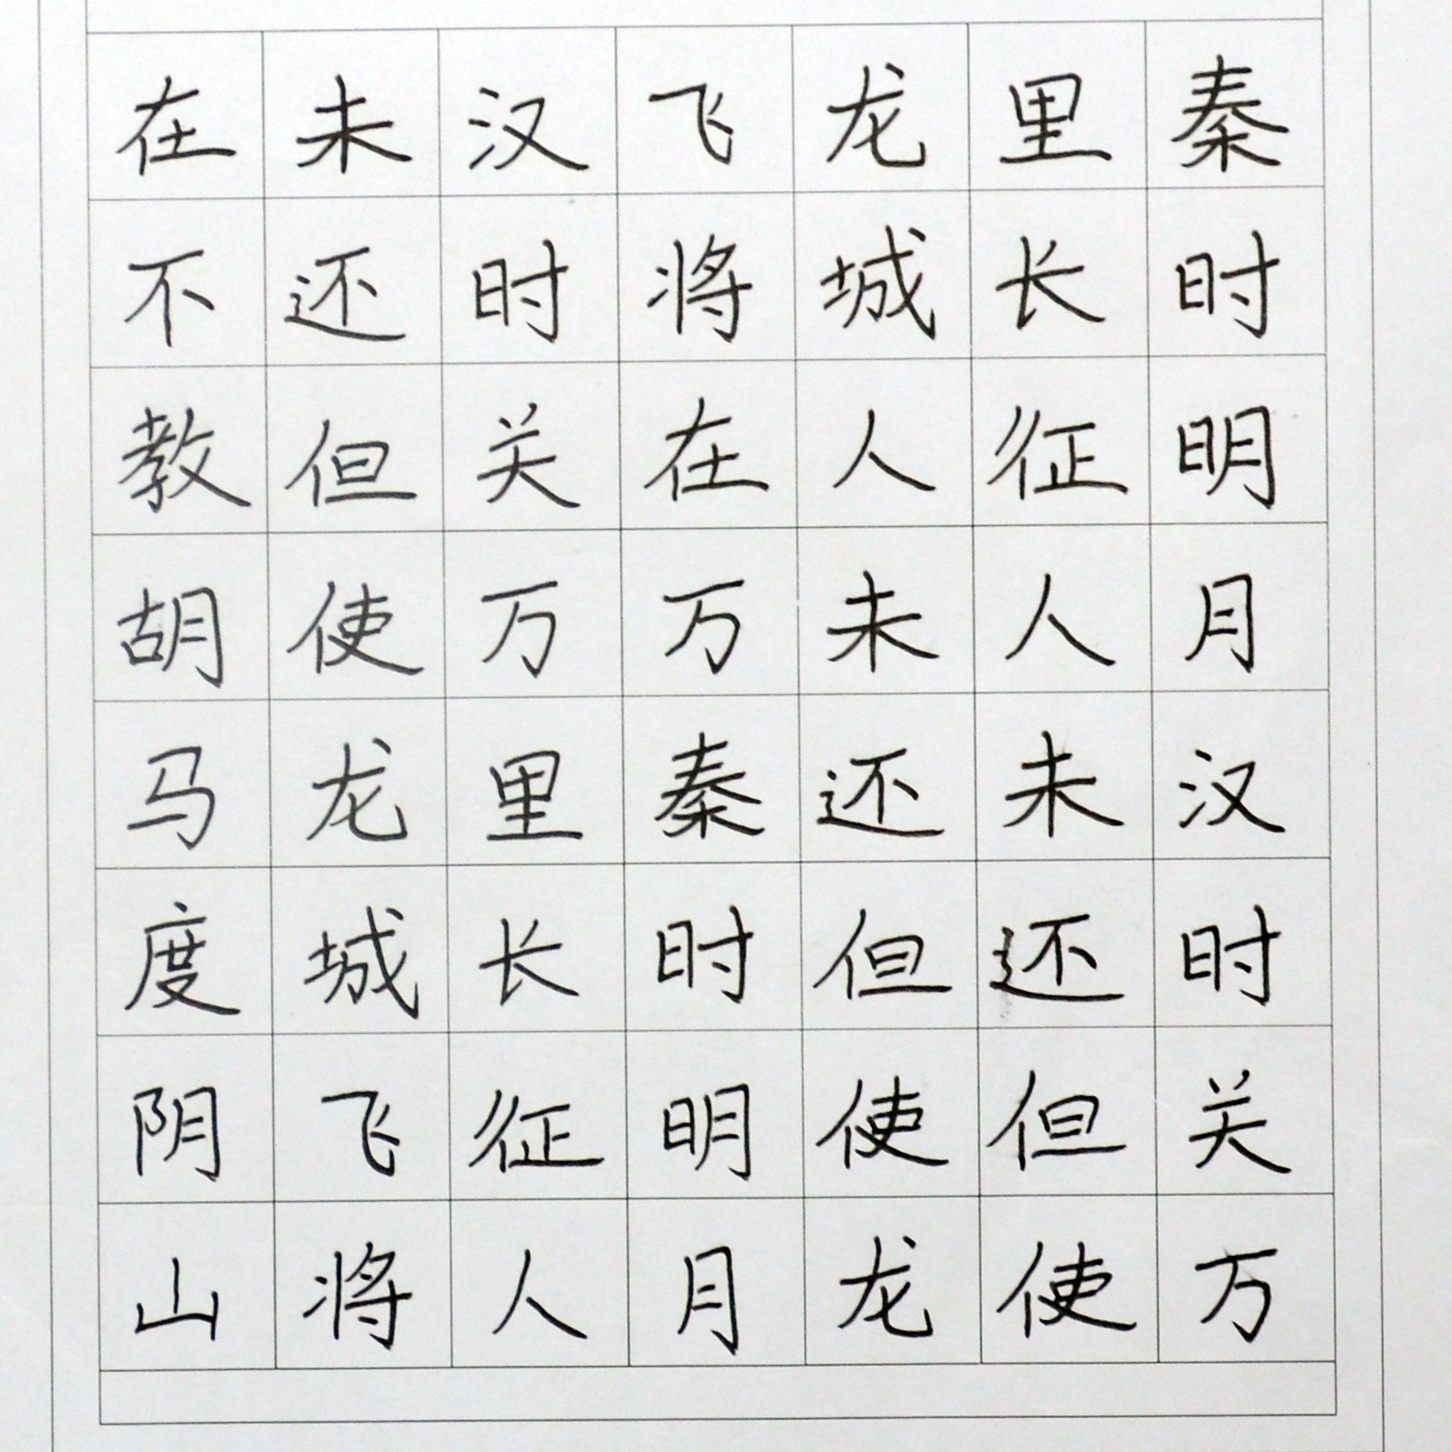 秦时明月汉时关万
里长征人未还但使
龙城人未还但使龙
飞将在万秦时明月
汉时关万里长征人
未还但使龙城飞将
在不教胡马度阴山